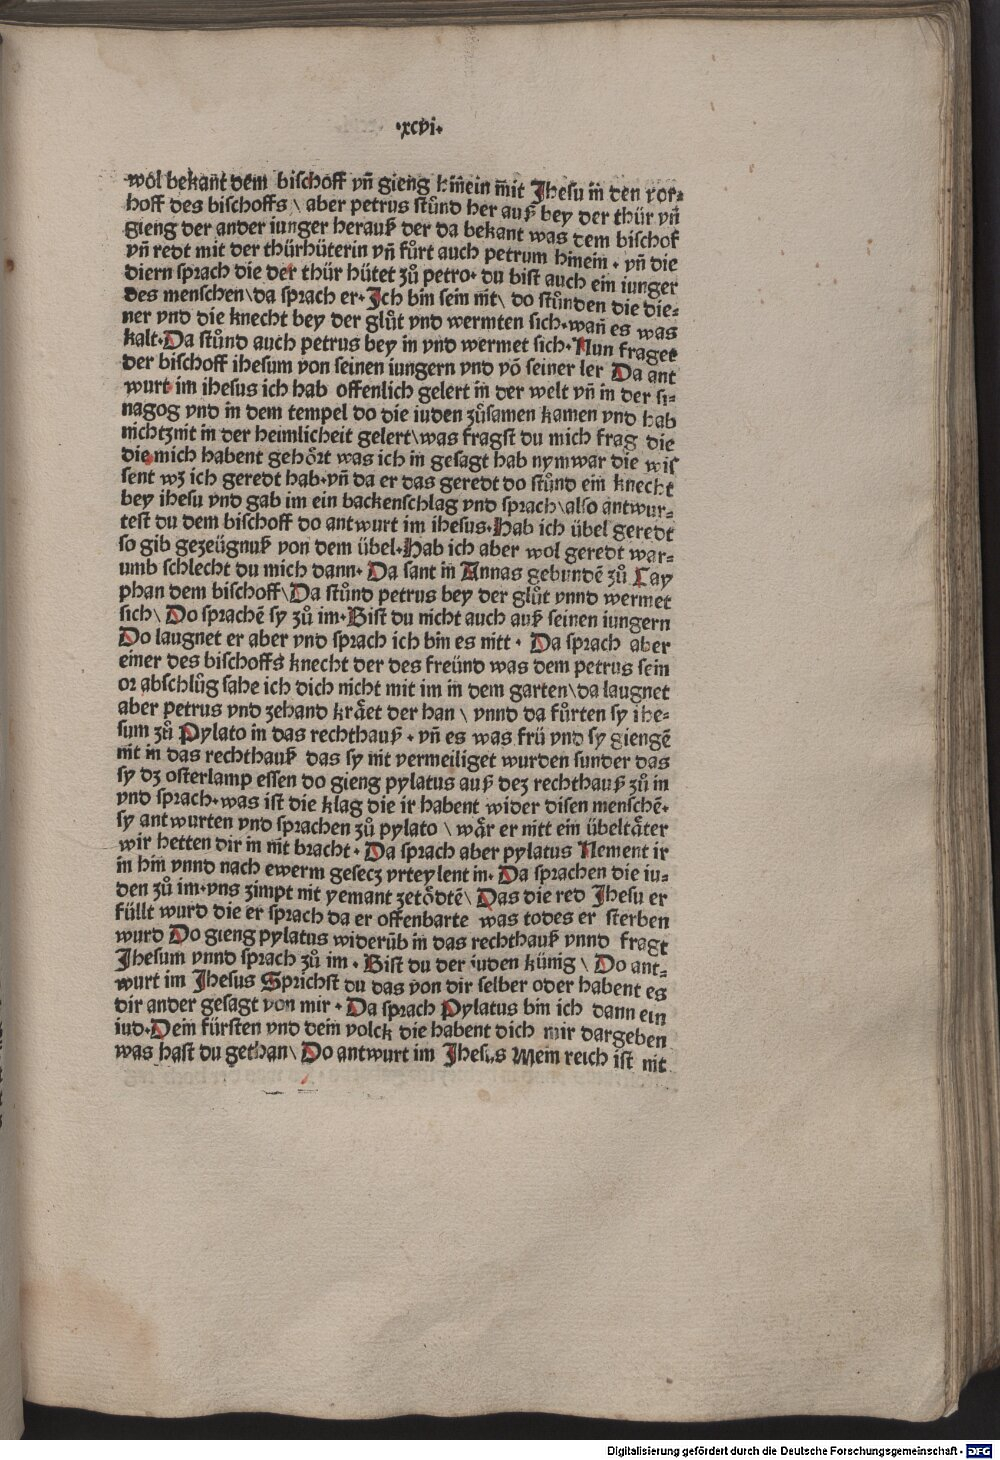 ·xcvi·
wol bekañt dem bischoff vñ gieng hinein mit Jhesu in den vor⸗
hoff des bischoffs \ aber petrus stůnd her auß bey der thür vñ
gieng der ander iunger herauß der da bekant was dem bischof
vñ redt mit der thürhüterin vñ fůrt auch petrum hinein · vñ die
diern sprach die der thür hütet zů petro· du bist auch ein iunger
des menschen\da sprach er· Jch bin sein nit\ do stůnden die die⸗
ner vnd die knecht bey der glůt vnd wermten sich·wañ es was
kalt·Da stůnd auch petrus bey in vnd wermet sich·Nun fraget
der bischoff ihesum von seinen iungern vnd võ seiner ler Da ant
wurt im ihesus ich hab offenlich gelert in der welt vñ in der si⸗
nagog vnd in dem tempel do die iuden zůsamen kamen vnd hab
nichtznit in der heimlicheit gelert\was fragst du mich frag die
die mich habent gehört was ich in gesagt hab nymwar die wis
sent wz ich geredt hab·vñ da er das geredt do stůnd ein knecht
bey ihesu vnd gab im ein backenschlag vnd sprach\also antwur⸗
test du dem bischoff do antwurt im ihesus·Hab ich übel geredt
so gib gezeügnuß von dem übel·Hab ich aber wol geredt war⸗
umb schlecht du mich dann· Da sant in Annas gebundẽ zů Cay
phan dem bischoff\Da stůnd petrus bey der glůt vnnd wermet
sich\ Do sprachẽ sy zů im·Bist du nicht auch auß seinen iungern
Do laugnet er aber vnd sprach ich bin es nitt · Da sprach aber
einer des bischoffs knecht der des freünd was dem petrus sein
or abschlůg sahe ich dich nicht mit im in dem garten\da laugnet
aber petrus vnd zehand kräet der han \ vnnd da fůrten sy ihe⸗
sum zů Pylato in das rechthauß · vñ es was frü vnd sy giengẽ
nit in das rechthauß das sy nit vermeiliget wurden sunder das
sy dz osterlamp essen do gieng pylatus auß dez rechthauß zů in
vnd sprach·was ist die klag die ir habent wider disen menschẽ·
sy antwurten vnd sprachen zů pylato \ wär er nitt ein übeltäter
wir hetten dir in nit bracht · Da sprach aber pylatus Nement ir
in hin vnnd nach ewerm gesecz vrteylent in· Da sprachen die iu⸗
den zů im·vns zimpt nit yemant zetödtẽ\ Das die red Jhesu er
füllt wurd die er sprach da er offenbarte was todes er sterben
wurd Do gieng pylatus widerũb in das rechthauß vnnd fragt
Jhesum vnnd sprach zů im · Bist du der iuden künig \ Do ant⸗
wurt im Jhesus Sprichst du das von dir selber oder habent es
dir ander gesagt von mir · Da sprach Pylatus bin ich dann ein
iud·Dein fürsten vnd dein volck die habent dich mir dargeben
was hast du gethan\ Do antwurt im Jhesus Mein reich ist nit
Digitalisierung gefördert durch die Deutsche Forschungsgemeinschaft - DFG